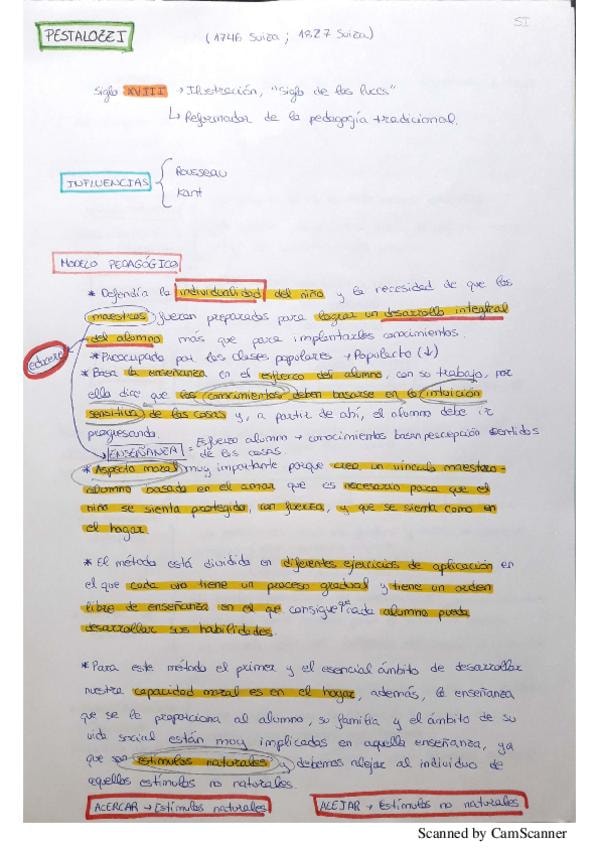 SI
PESTALOZZI (1746 Suiza ; 1827 Suiza)
Siglo XVIII → Ilustración, "Siglo de las luces"
↳ Reformador de la pedagogía tradicional.
INFLUENCIAS { Rousseau
Kant
MODELO PEDAGÓGICO
* Defendía la individualidad del niño y la necesidad de que los
maestros fueran preparados para lograr un desarrollo integral
del alumno más que para implantarles conocimientos.
educere
* Preocupado por las clases populares → Populacho (↓)
* Basa la enseñanza en el esfuerzo del alumno, con su trabajo, por
ello dice que los conocimientos deben basarse en la intuición
sensitiva de las cosas y, a partir de ahí, el alumno debe ir
progresando.
ENSEÑANZA = Esfuerzo alumno → conocimientos basan percepción sentidos
de las cosas.
* Aspecto moral muy importante porque crea un vínculo maestro-
alumno basado en el amor que es necesario para que el
niño se sienta protegido, con fuerza, y que se sienta como en
el hogar.
* El método está dividido en diferentes ejercicios de aplicación en
el que cada uno tiene un proceso gradual y tiene un orden
libre de enseñanza en el que consigue que cada alumno pueda
desarrollar sus habilidades.
* Para este método el primer y el esencial ámbito de desarrollar
nuestra capacidad moral es en el hogar, además, la enseñanza
que se le proporciona al alumno, su familia y el ámbito de su
vida social están muy implicados en aquella enseñanza, ya
que son estímulos naturales y debemos alejar al individuo de
aquellos estímulos no naturales.
ACERCAR → Estímulos naturales ALEJAR → Estímulos no naturales
Scanned by CamScanner